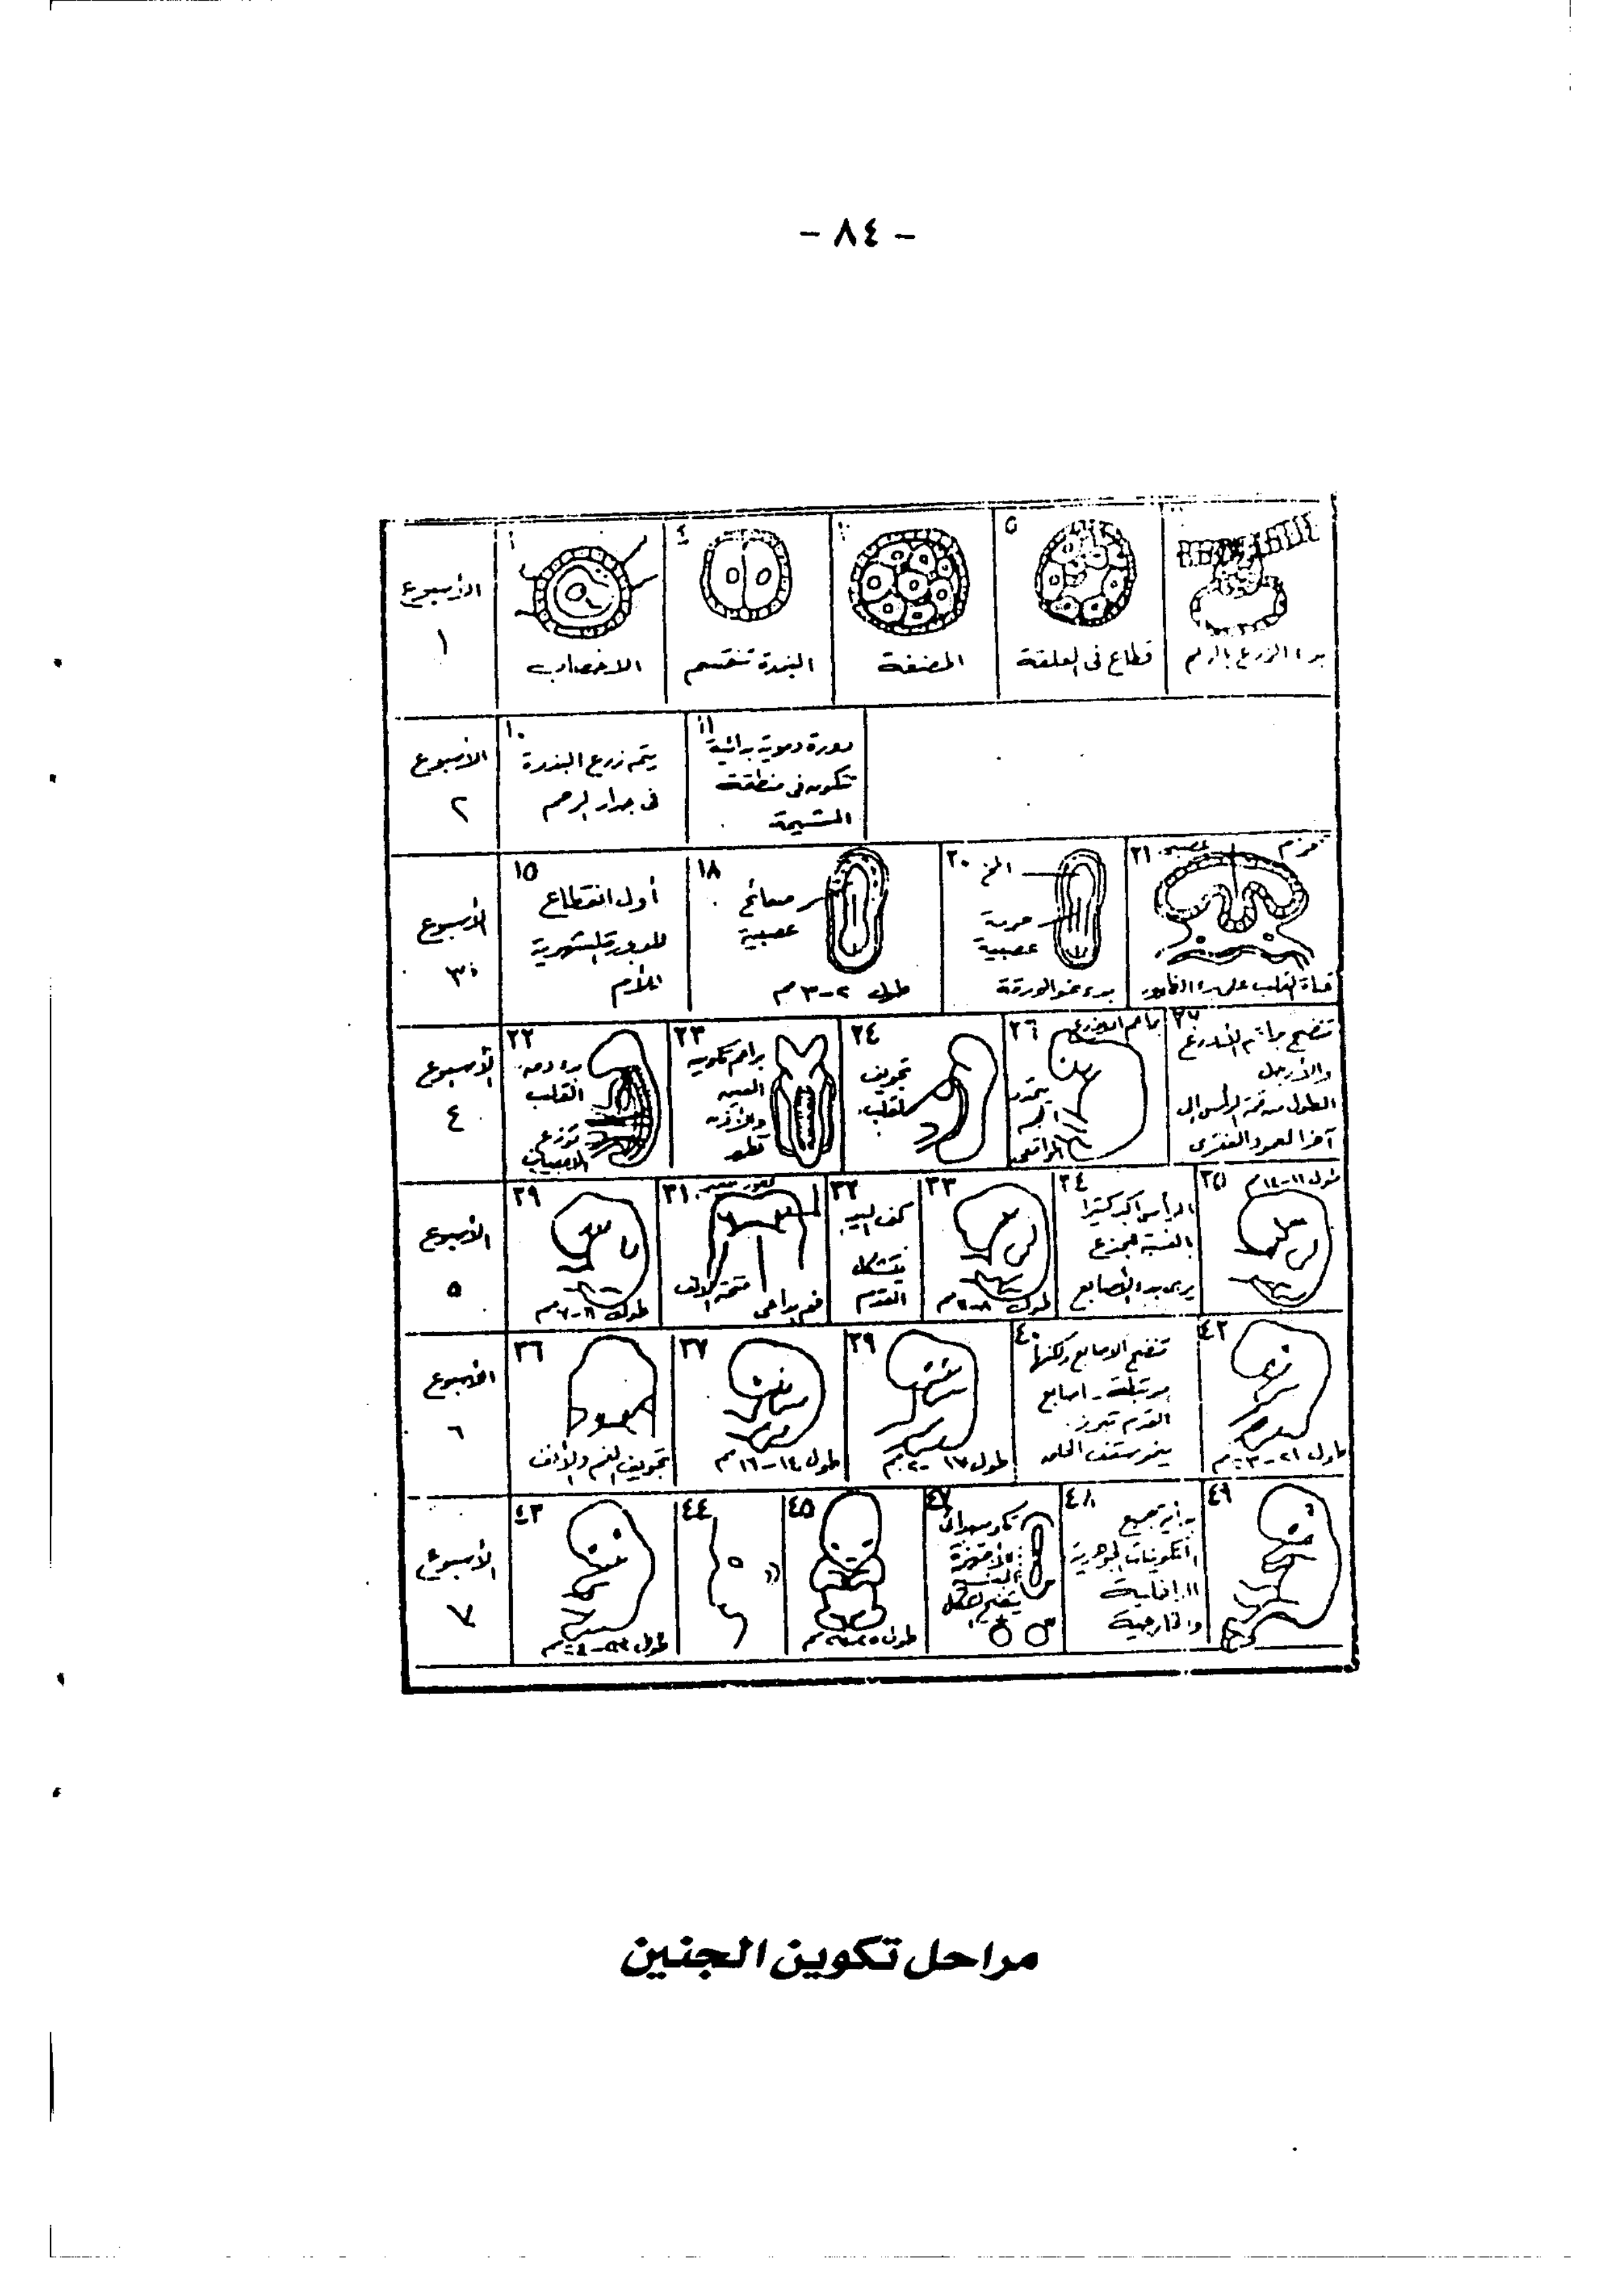 - ٨٤ -
الأسبوع
١
١
الاخصاب
٤
البذرة تنقسم
المضغة
٥
قطاع فى العلقة
بدء الزرع بالرحم
الأسبوع
٢
١٠
يتم زرع البذرة
فى جدار الرحم
١١
دورة دموية بدائية
تتكون فى منطقة
المشيمة
الأسبوع
٣
١٥
أول انقطاع
للدورة الشهرية
للأم
١٨
صفائح
عصبية
طول ٢-٣ مم
٢٠
المخ
حزمة
عصبية
بدء نمو الورقة
٢١
حزم عصبية
الأسبوع
٤
٢٢
القلب
٢٣
براعم تكوين
العين
والأذن
تظهر
٢٤
تجويف
القلب
٢٦
٢٧
تتضح براعم الأذرع
والأرجل
الطول من قمة الرأس إلى
آخر العمود الفقرى
الأسبوع
٥
٢٩
٣١
فتحة الأنف
فم بدائى
٣٢
كف اليد
تتشكل
القدم
٣٣
٣٤
الرأس أكبر كثيرا
بالنسبة للجذع
يرى بدء الأصابع
٣٥
طول ١١-١٤ مم
الأسبوع
٦
٣٦
تجويف الفم والأنف
٣٧
طول ١٤-١٦ مم
٣٩
طول ١٧-٢٠ مم
٤٠
تتضح الاصابع ولكنها
مرتبطة - اصابع
القدم تبرز
ينمو سقف الحلق
٤٢
الأسبوع
٧
٤٣
٤٤
٤٥
٤٧
٤٨
بداية جميع
التكوينات الجوهرية
الداخلية
والخارجية
٤٩
مراحل تكوين الجنين